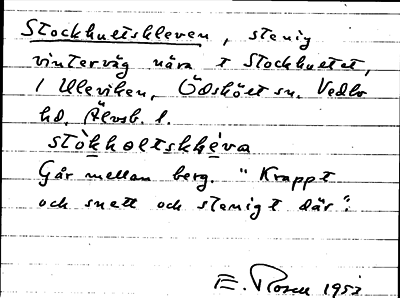 Stockhultskleven, stenig
vinterväg nära t Stockhultet,
i Uleviken, Ödskölt sn. Vedbo
hd. Älvsb. l.
stòkholtskhèva
Går mellan berg. "Krappt
och snett och stenigt där".
E. Rosell 1953